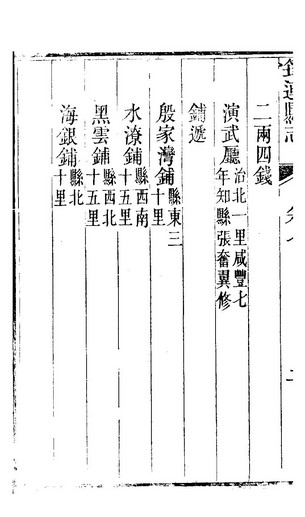 二兩四錢
演武廳治北一里咸豐七年知縣張奮翼修
鋪遞
殷家灣鋪縣東三十里
水潦鋪縣西南十五里
黑雲鋪縣西北十五里
海銀鋪縣北十里